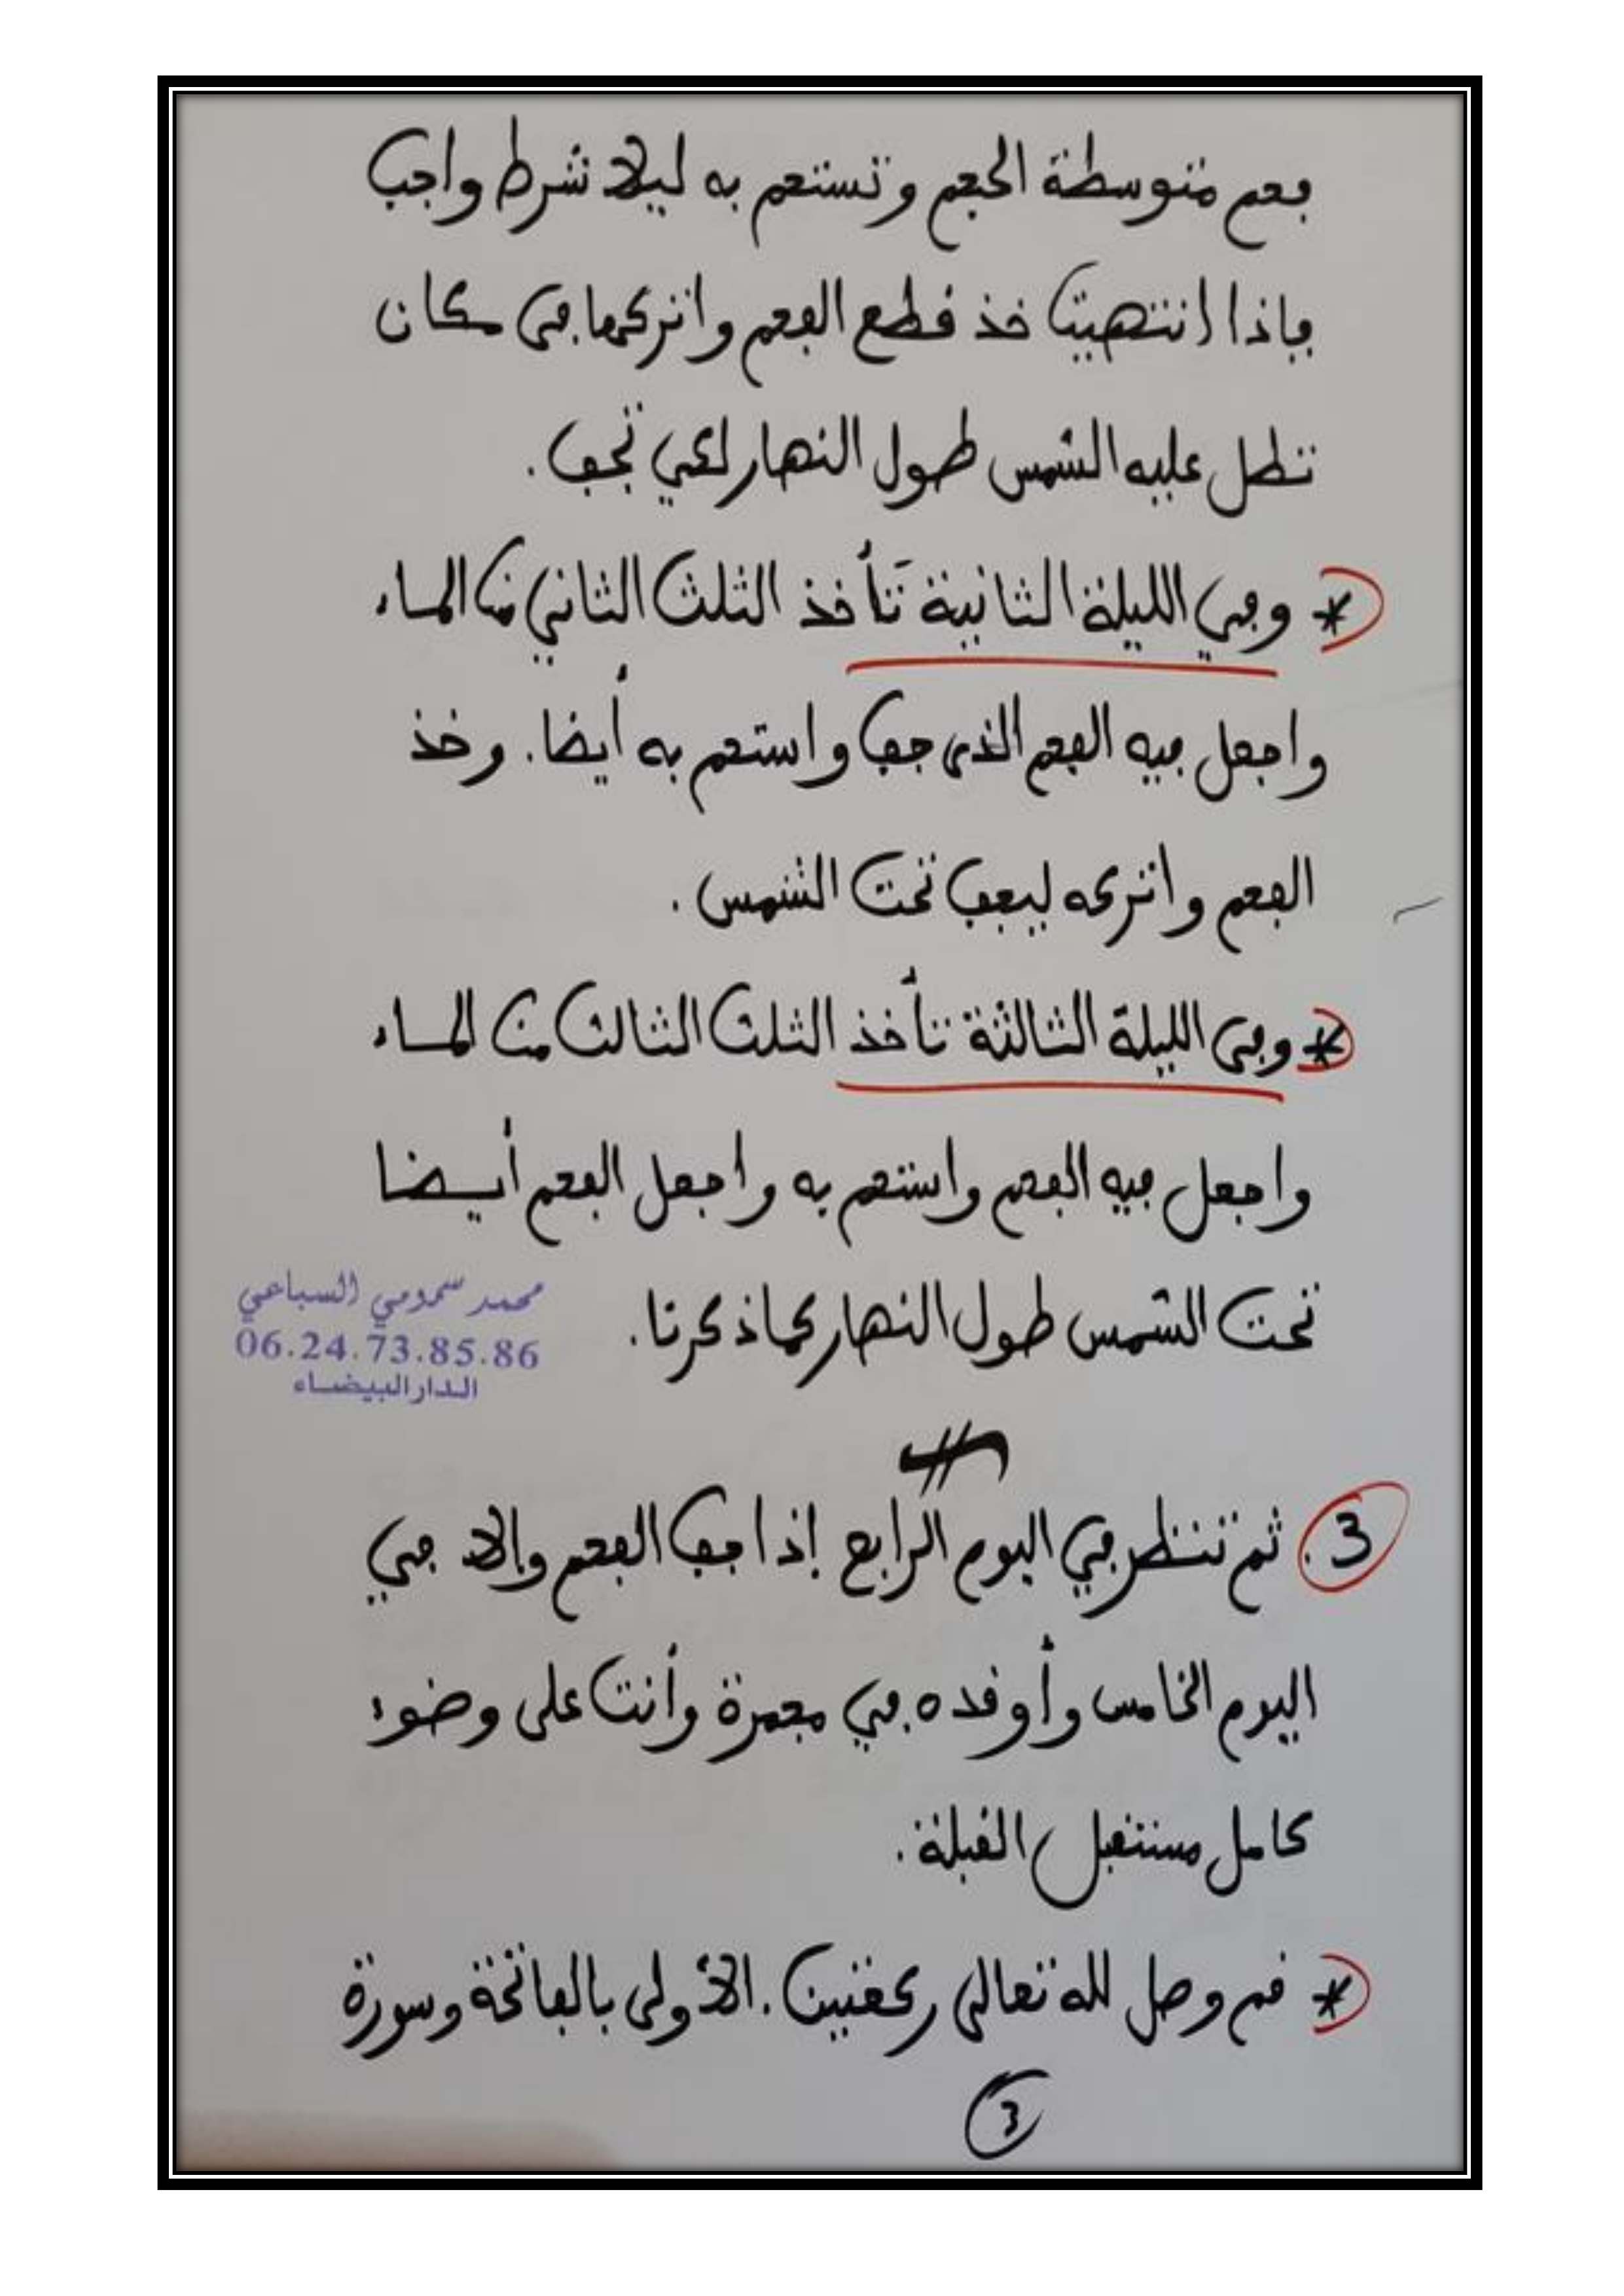 فحم متوسطة الحجم وتستحم به ليلا شرط واجب
فإذا انتهيت خذ قطع الفحم واتركها في مكان
تطل عليه الشمس طول النهار لكي تجف .
* وفي الليلة الثانية تَأخذ الثلث الثاني من الماء
واجعل فيه الفحم الذي جف واستحم به أيضا . وخذ
الفحم واتركه ليجف تحت الشمس .
* وفي الليلة الثالثة تأخذ الثلث الثالث من الماء
واجعل فيه الفحم واستحم به واجعل الفحم أيضا
تحت الشمس طول النهار كما ذكرنا .
محمد سمومي السباعي
06.24.73.85.86
الدار البيضاء
3. ثم تنظر في اليوم الرابع إذا جف الفحم وإلا في
اليوم الخامس وأوقده في مجمرة وأنت على وضوء
كامل مستقبل القبلة .
* قم وصل لله تعالى ركعتين . الأولى بالفاتحة وسورة
3